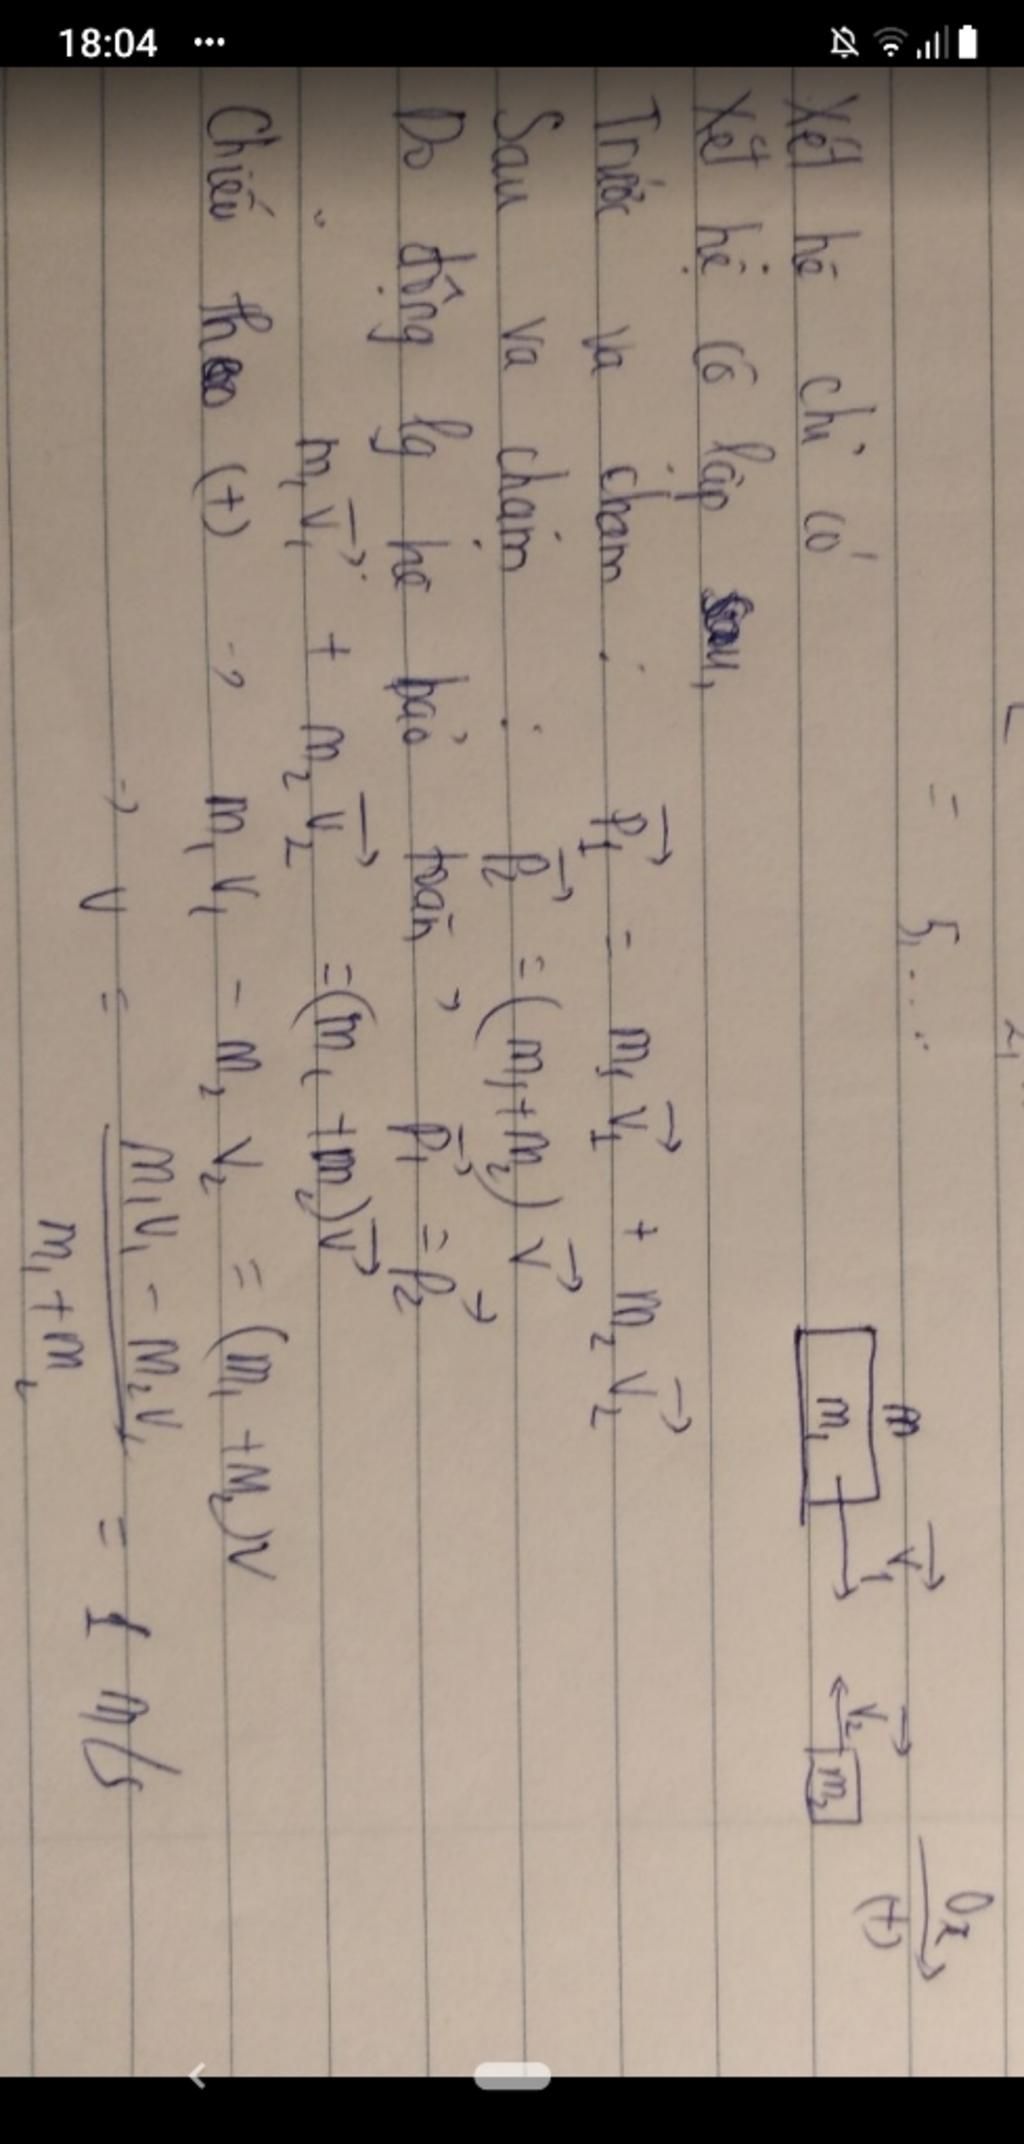 18:04 ...
= ξ...
Ox
(+)
m
v₁→
v₂→
m₁
m₂
Xét hệ chỉ có
Xét hệ cô lập
Trước va chạm : p₁→ = m₁v₁→ + m₂v₂→
Sau va chạm : p₂→ = (m₁+m₂)v→
Do động lg hệ bảo toàn, p₁→ = p₂→
m₁v₁→ + m₂v₂→ = (m₁+m₂)v→
Chiếu theo (+) → m₁v₁ - m₂v₂ = (m₁+m₂)v
→ v = m₁v₁ - m₂v₂ = 1 m/s
m₁+m₂